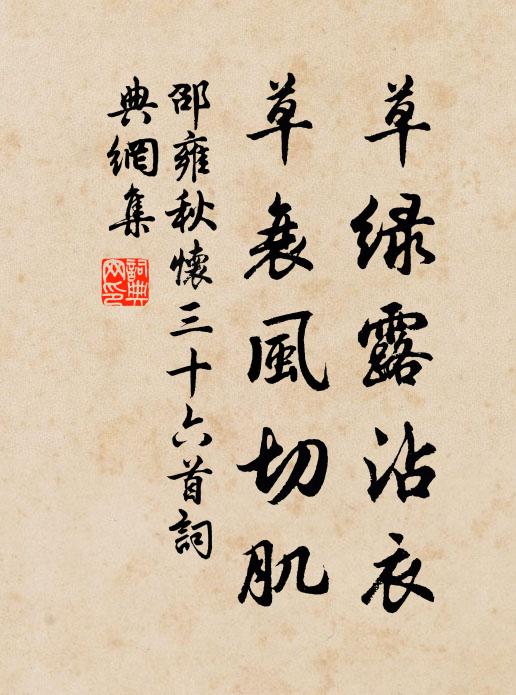 草緑露沾衣
草衰風切肌
邵雍秋懷三十六首詞
典網集
詞典
网印